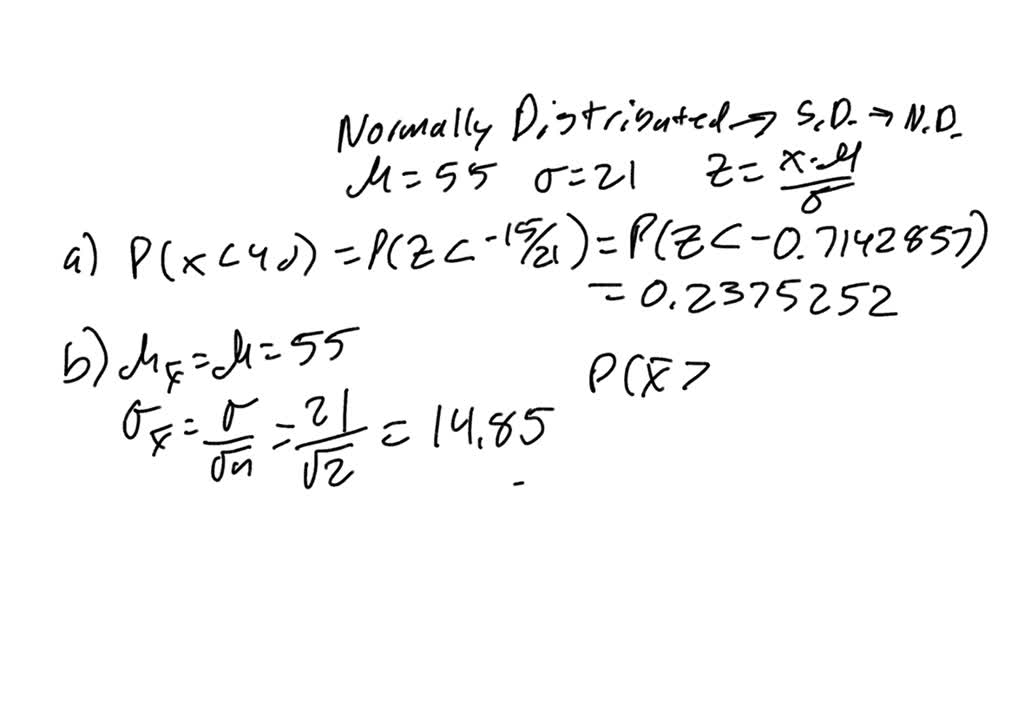 Normally Distributed → S.D. → N.D.
μ = 55 σ = 21 z = x-μ/σ
a) P(x < 40) = P(Z < -15/21) = P(Z < -0.7142857)
= 0.2375252
b) μx̄ = μ = 55 P(x̄ >
σx̄ = σ/√n = 21/√2 = 14.85
-